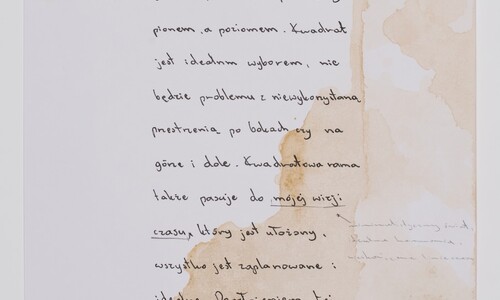 pionem, a poziomem. Kwadrat
jest idealnm wyborem, nie
będzie problemu z niewykorzystaną
przestrzenią po bokach czy na
górze i dole. Kwadratowa rama
także pasuje do mojej wizji
czasu, który jest ułożony,
wszystko jest zaplanowane i